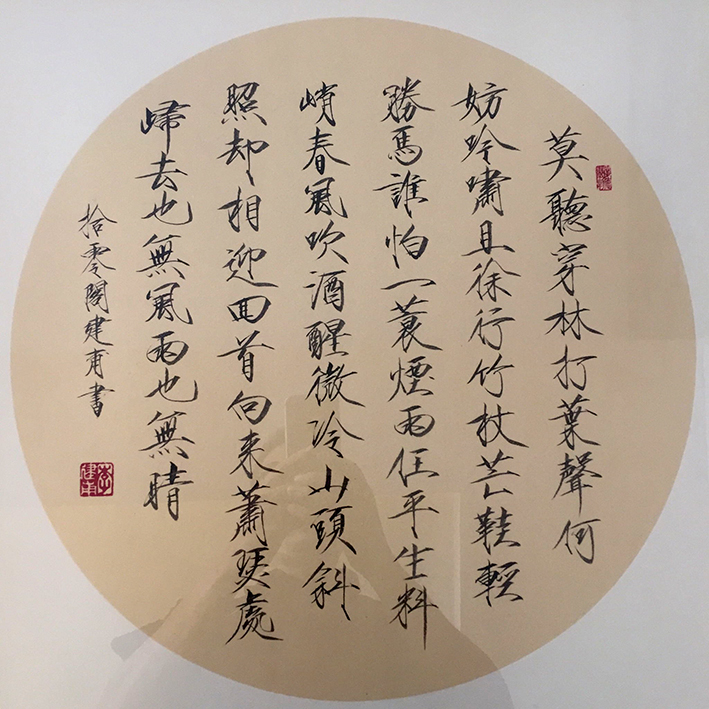 莫聽穿林打葉聲何
妨吟嘯且徐行竹杖芒鞋輕
勝馬誰怕一蓑煙雨任平生料
峭春風吹酒醒微冷山頭斜
照却相迎回首向来蕭瑟處
歸去也無風雨也無晴
拾零閣建甫書
李建甫